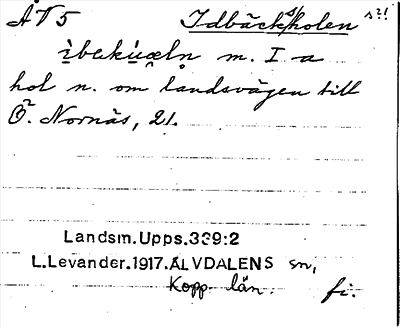 ÅT5 Idbäck(s)holen s?!
ìbekùæln m. I a
hol n. om landsvägen till
Ö. Nornäs, 21.
Landsm.Upps.339:2
L.Levander.1917.ÄLVDALENS sn,
Kopp. län. fi.